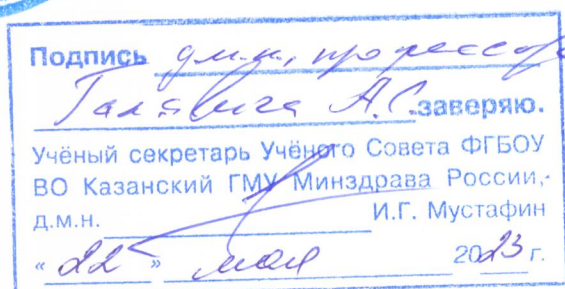 Подпись д.м.н., профессора
Галявича А.С. заверяю.
Учёный секретарь Учёного Совета ФГБОУ
ВО Казанский ГМУ Минздрава России,
д.м.н. И.Г. Мустафин
« 22 » мая 2023 г.